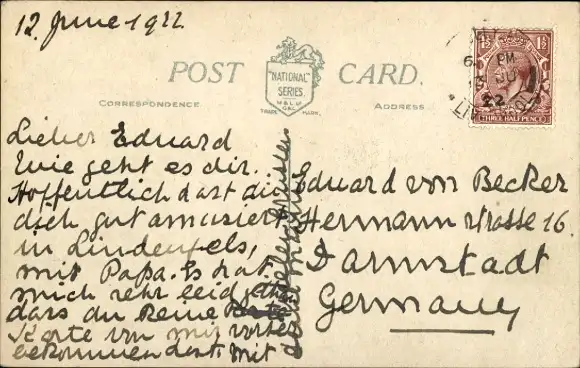 12. June 1922
POST CARD.
"NATIONAL"
SERIES.
M & L Ltd
TRADE MARK.
CORRESPONDENCE
ADDRESS
Lieber Eduard
Wie geht es dir.
Hoffentlich dast du
dich gut amusiert
in Lindenfels,
mit Papa. Es hat
mich sehr leid getan
dass du keine Karte
Karte von mir vorher
bekommen dast. Mit
besten Grüssen
Eduard von Becker
Hermannstrasse 16.
Darmstadt
Germany
PM
22
1½ 1½
THREE HALFPENCE